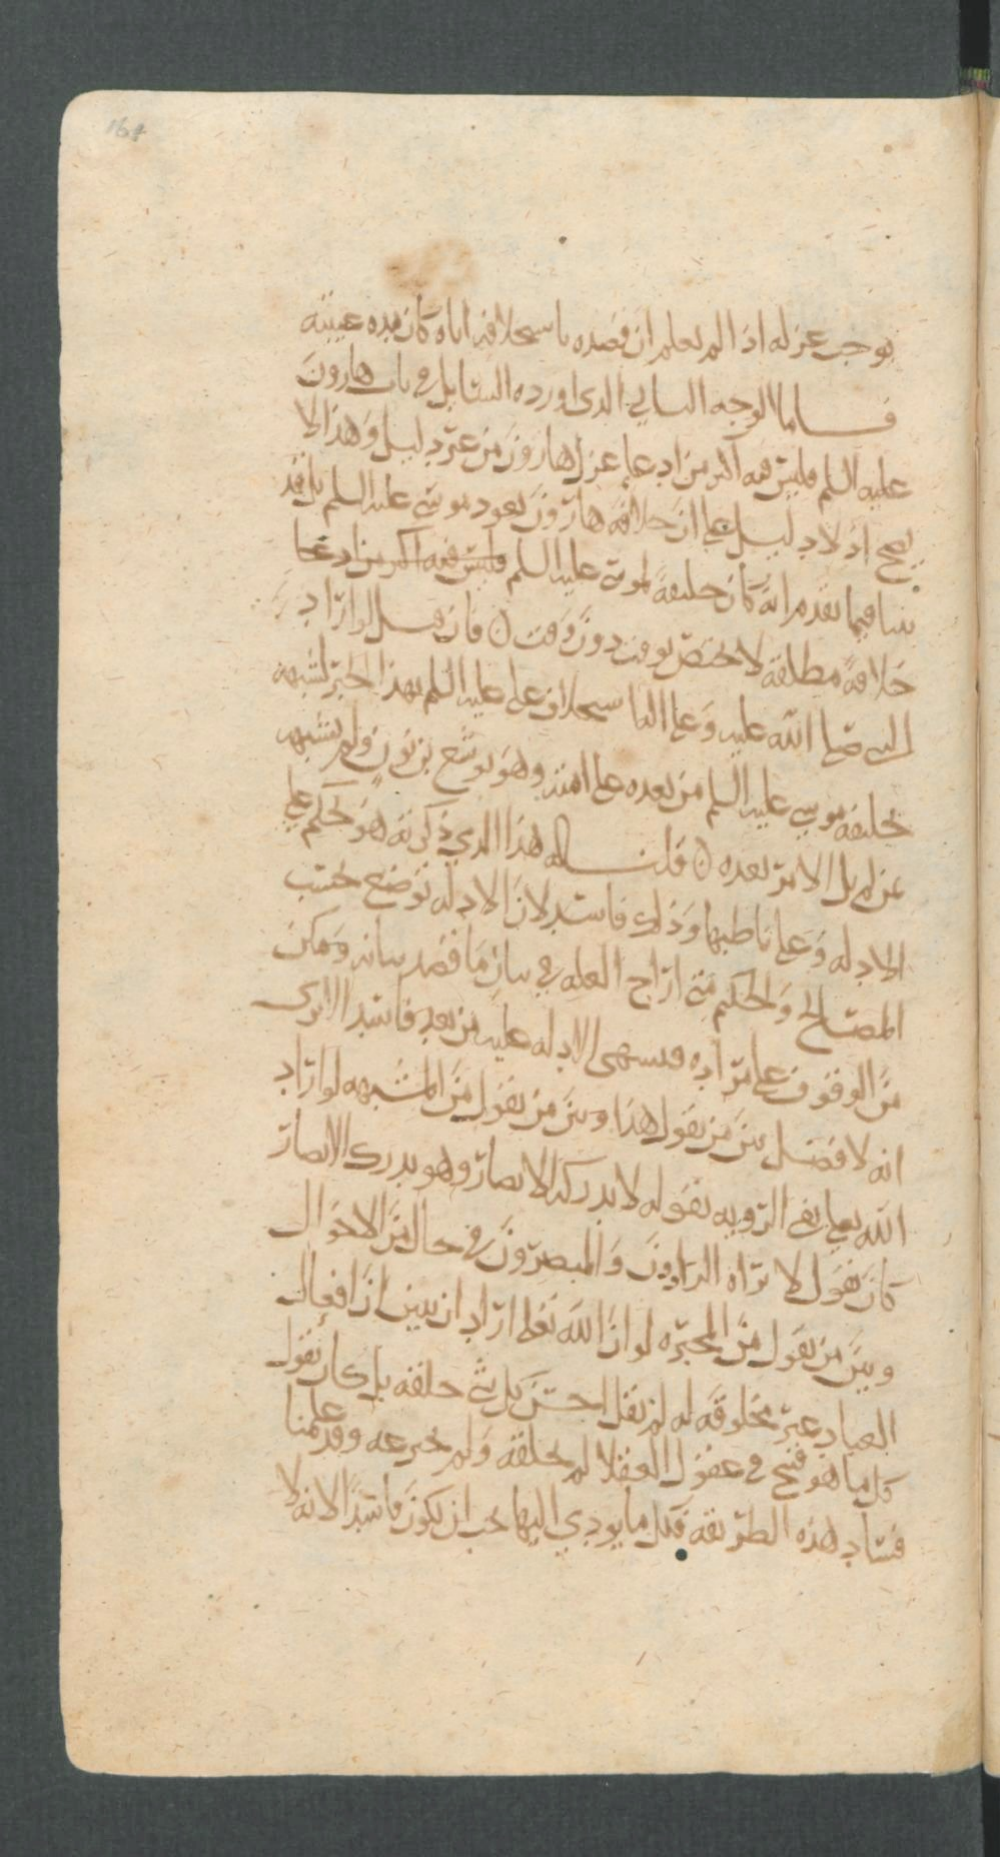 168
يوجب عزله اذا لم يعلم ان قصده باستخلافه اياه كان مده غيبته
فاما الوجه الثاني الذي اورده السايل في باب هارون
عليه السلم فليس فيه اكثر من ادعا عزل هارون من غير دليل وهذا لا
يصح اذ لا دليل على ان خلافة هارون بعود موسى عليه السلم بل قد
بينا فيما تقدم انه كان خليفة لموسى عليه السلم فليس فيه اكثر من ادعا
خلافة مطلقة لا تختص بوقت دون وقت ن فان قيل لو اراد
النبي صلى الله عليه وعلى اله استخلاف علي عليه السلم بهذا الخبر لشبهه
بخليفة موسى عليه السلم من بعده على امته وهو يوشع بن نون ولم يشبهه
بمن لم يل الامر بعده ن قلنا له هذا الذي ذكرته هو تحكم على
الادله وعلى ناصبها وذلك فاسد لان الادله توضع بحسب
المصالح والحكيم متى ازاح العله في بيان ما قصد بيانه ومكن
من الوقوف على مراده فتشهي الادله عليه من بعد فاسد الا ترى
انه لا فصل بين من يقول هذا وبين من يقول من المشبهه لو اراد
الله تعالى نفي الرويه بقوله لا تدركه الابصار وهو يدرك الابصار
كان يقول لا يراه الراوون والمبصرون في حال من الاحوال
وبين من يقول من المجبره لو ان الله تعالى اراد ان يبين ان افعال
العباد غير مخلوقه له لم يقل احسن كل شي خلقه بل كان يقول
كل ما هو قبيح في عقول العقلا لم يخلقه ولم يخترعه وقد علمنا
فساد هذه الطريقه فكل ما يودي اليها يجب ان يكون فاسدا لانه لا